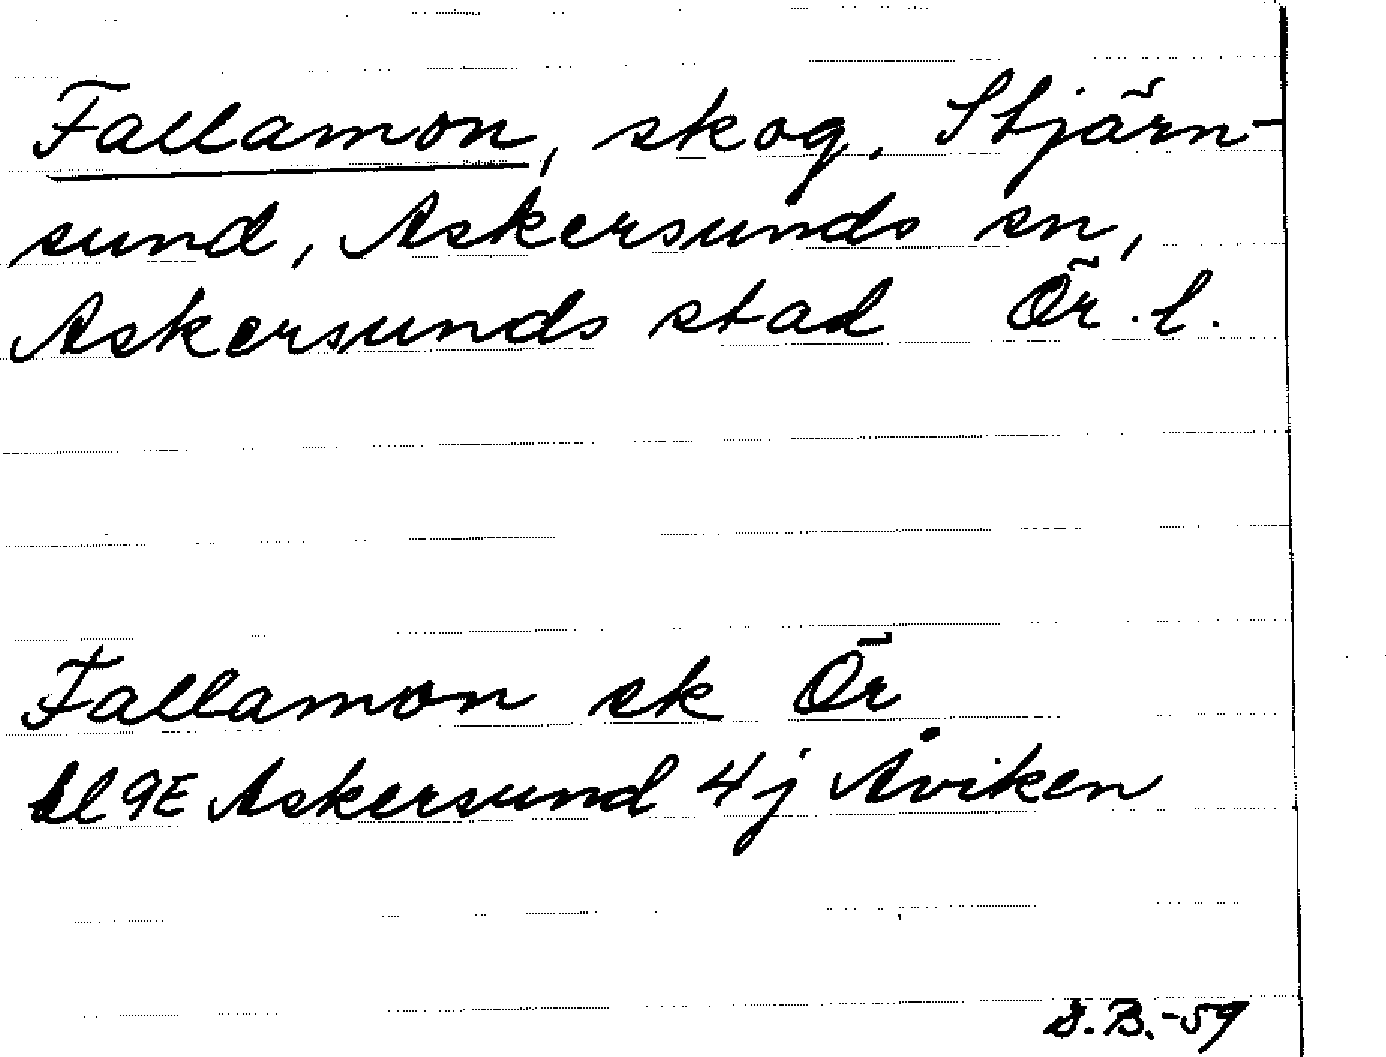 Fallamon, skog, Stjärn-
sund, Askersunds sn,
Askersunds stad Ör. l.
Fallamon sk Ör
bl 9E Askersund 4j Åviken
B.-59